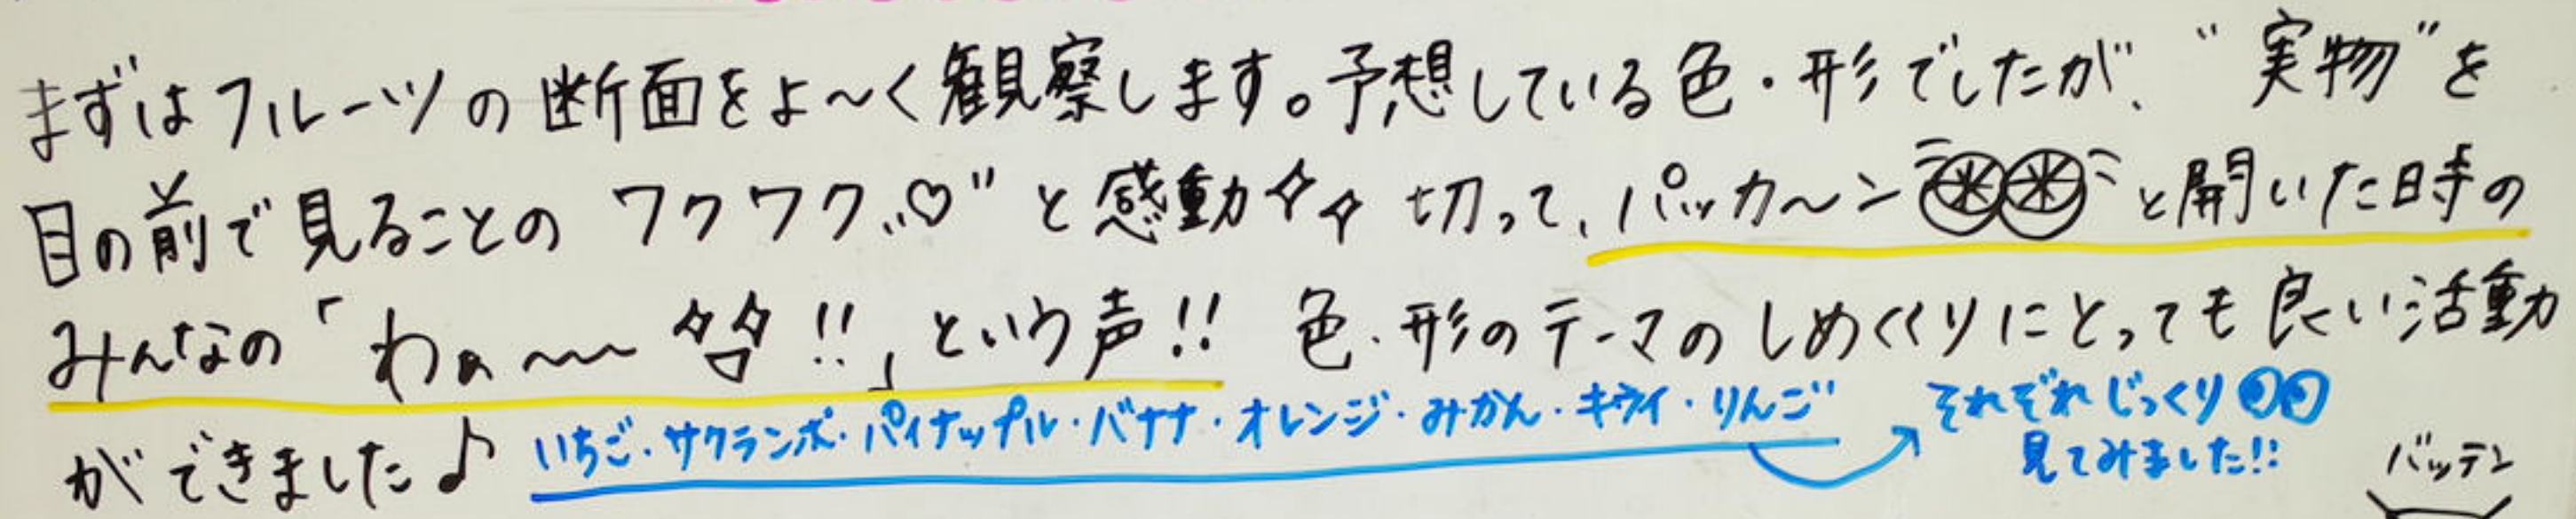 まずはフルーツの断面をよ〜く観察します。予想している色・形でしたが、"実物"を
目の前で見ることの ワクワク♡"と感動 切って、パッカ〜ン と開いた時の
みんなの「わぁ〜〜!!」という声!! 色・形のテーマのしめくくりにとっても良い活動
ができました♪
いちご・サクランボ・パイナップル・バナナ・オレンジ・みかん・キウイ・りんご
それぞれじっくり
見てみました!!
バッテン